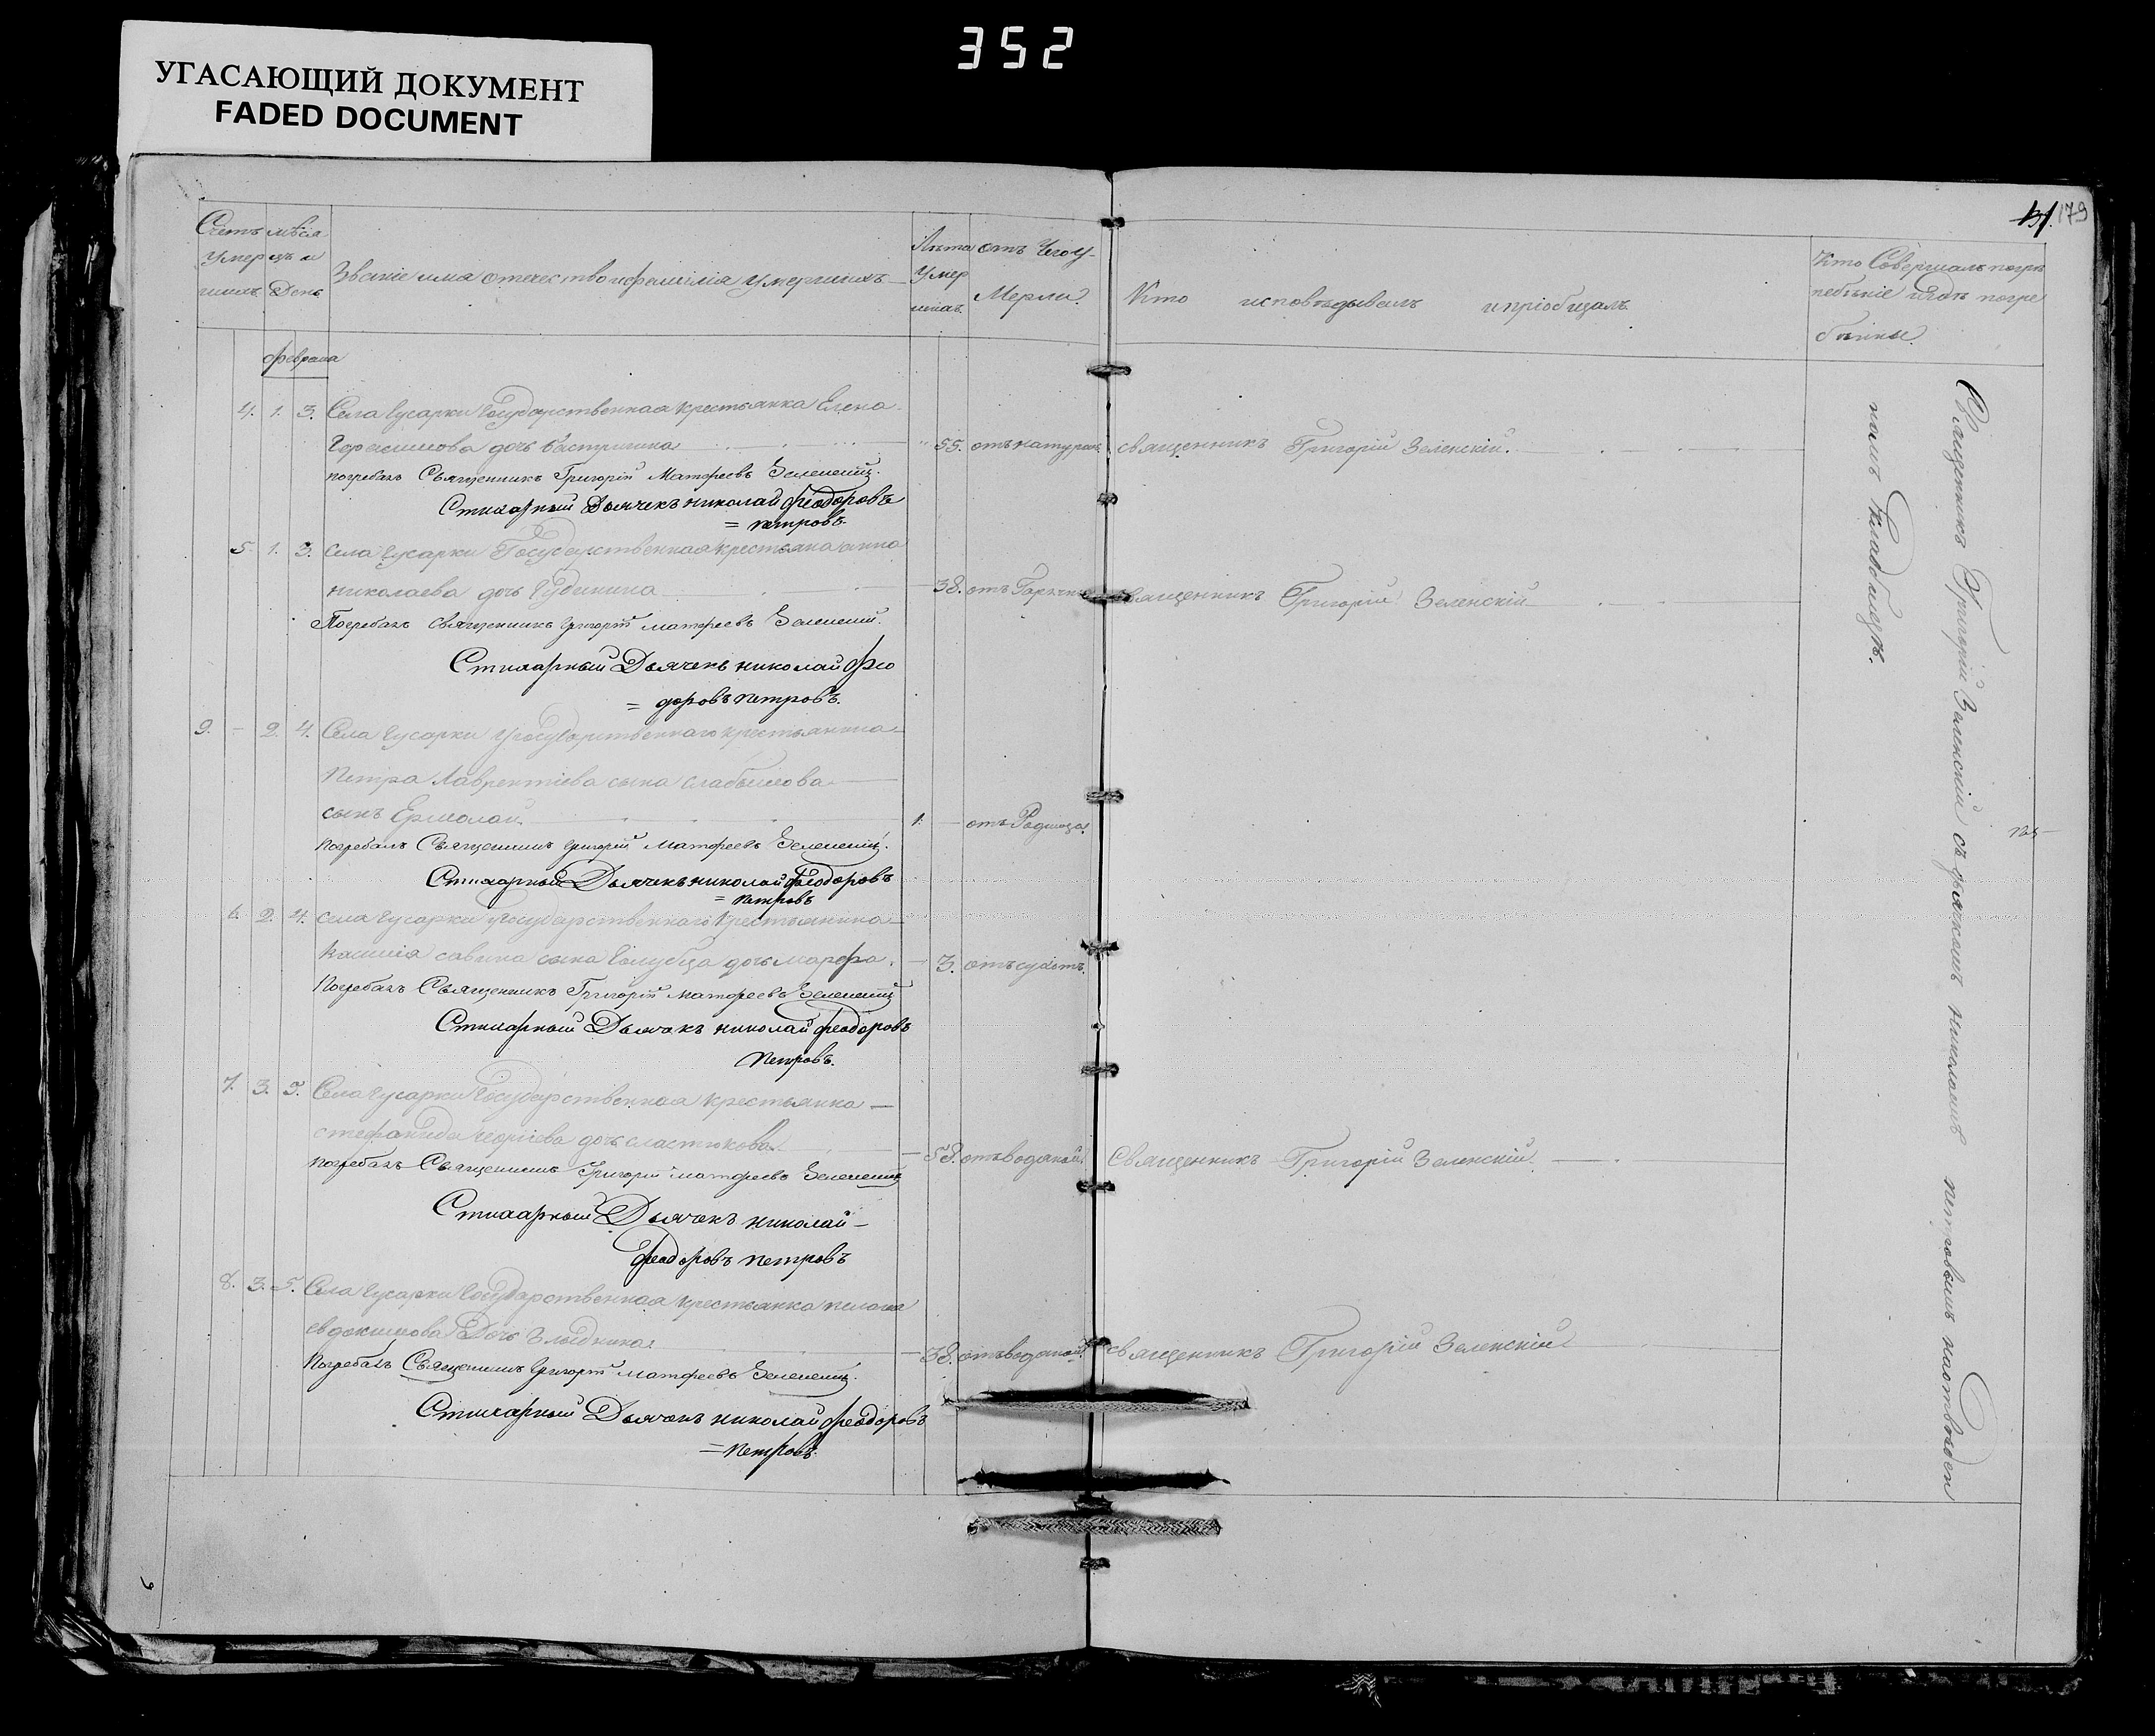 352
УГАСАЮЩИЙ ДОКУМЕНТ
FADED DOCUMENT
179
Счетъ умершихъ
мѣсяцъ и День
Званіе имя отечество и фамилія умершихъ
Лѣта умершихъ
отъ Чего умерли
Кто исповѣдывалъ и пріобщалъ
Кто Совершалъ погребеніе и гдѣ погребены.
февраля
4. 1. 3. Села Гусарки Государственная крестьянка Елена
Герасимова дочь
55. отъ натуральн. священникъ Григорій Зеленскій.
погребалъ Священникъ Григорій Матфеевъ Зеленскій.
Стихарный Дьячекъ николай Феодоровъ
= петровъ.
5. 1. 3. Села Гусарки Государственная крестьянка анна
николаева дочь Губинина
38. отъ Горячки священникъ Григорій Зеленскій
Погребалъ Священникъ Григорій матфеевъ Зеленскій.
Стихарный Дьячекъ николай Фео
= доровъ петровъ.
9. - 2. 4. Села Гусарки Государственнаго крестьянина
Петра Лаврентіева сына
сынъ Ермолай
1. - отъ Родимца.
Погребалъ Священникъ Григорій Матфеевъ Зеленскій.
Стихарный Дьячекъ николай Феодоровъ
= петровъ
6. 2. 4. Села Гусарки Государственнаго Крестьянина
савина сына Голубца дочь марфа.
3. отъ сухотъ.
Погребалъ Священникъ Григорій матфеевъ Зеленскій
Стихарный Дьячекъ николай феодоровъ
Петровъ.
7. 3. 5. Села Гусарки Государственная крестьянка
стефанида дочь сластюкова
58. отъ водяной. Священникъ Григорій Зеленскій.
погребалъ Священникъ Григорій матфеевъ Зеленскій
Стихарный Дьячекъ николай
Феодоровъ петровъ
8. 3. 5. Села Гусарки Государственная крестьянка
евдокимова Дочь
38. отъ водяной. священникъ Григорій Зеленскій
Погребалъ Священникъ Григорій матфеевъ Зеленскій.
Стихарный Дьячекъ николай феодоровъ
= петровъ.
Священникъ Григорій Зеленскій съ дьячкомъ николаемъ петровымъ